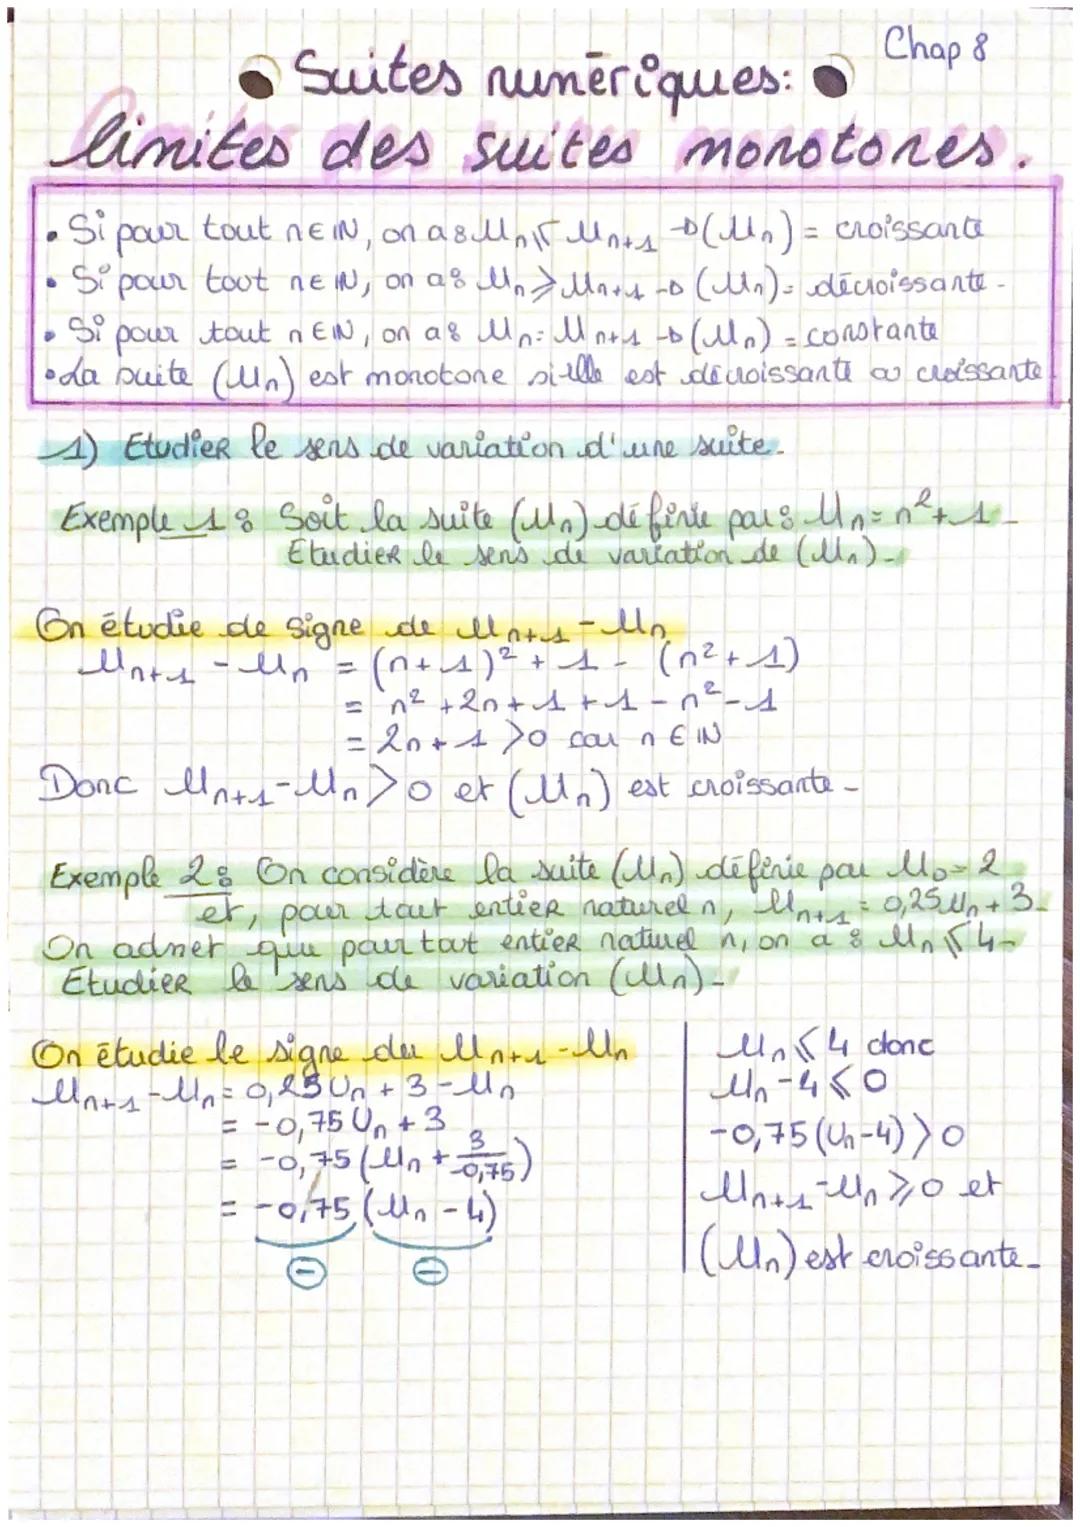 Chap 8
Suites numériques:
limites des suites monotones.
• Si pour tout n∈ℕ, on a : Un ⩽ Un+1 → (Un) = croissante
• Si pour tout n∈ℕ, on a : Un ⩾ Un+1 → (Un) = décroissante.
• Si pour tout n∈ℕ, on a : Un = Un+1 → (Un) = constante
• La suite (Un) est monotone si elle est décroissante ou croissante
1) Etudier le sens de variation d'une suite.
Exemple 1 : Soit la suite (Un) définie par : Un = n² + 1.
Etudier le sens de variation de (Un).
On étudie de signe de Un+1 - Un
Un+1 - Un = (n+1)² + 1 - (n² + 1)
= n² + 2n + 1 + 1 - n² - 1
= 2n + 1 > 0 car n ∈ ℕ
Donc Un+1 - Un > 0 et (Un) est croissante.
Exemple 2 : On considère la suite (Un) définie par U0 = 2
et, pour tout entier naturel n, Un+1 = 0,25Un + 3.
On admet que pour tout entier naturel n, on a : Un ⩽ 4.
Etudier le sens de variation (Un).
On étudie le signe du Un+1 - Un
Un+1 - Un = 0,25Un + 3 - Un
= -0,75Un + 3
= -0,75(Un + 3/-0,75)
= -0,75(Un - 4)
⊖ ⊖
Un ⩽ 4 donc
Un - 4 ⩽ 0
-0,75(Un-4) > 0
Un+1 - Un ⩾ 0 et
(Un) est croissante.